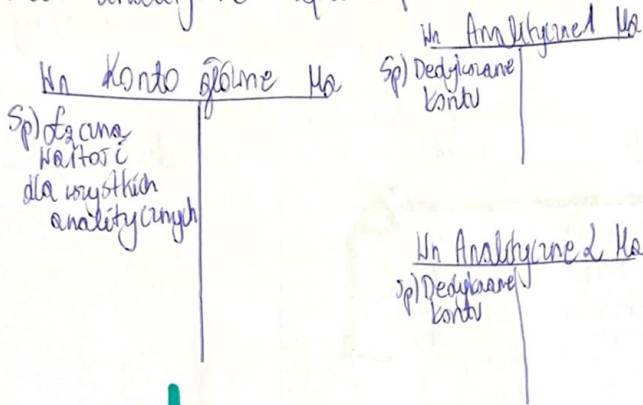 Wn Konto główne Ma
Sp) Łączna
wartość
dla wszystkich
analitycznych
Wn Analityczne 1 Ma
Sp) Dedykowane
kontu
Wn Analityczne 2 Ma
Sp) Dedykowane
kontu